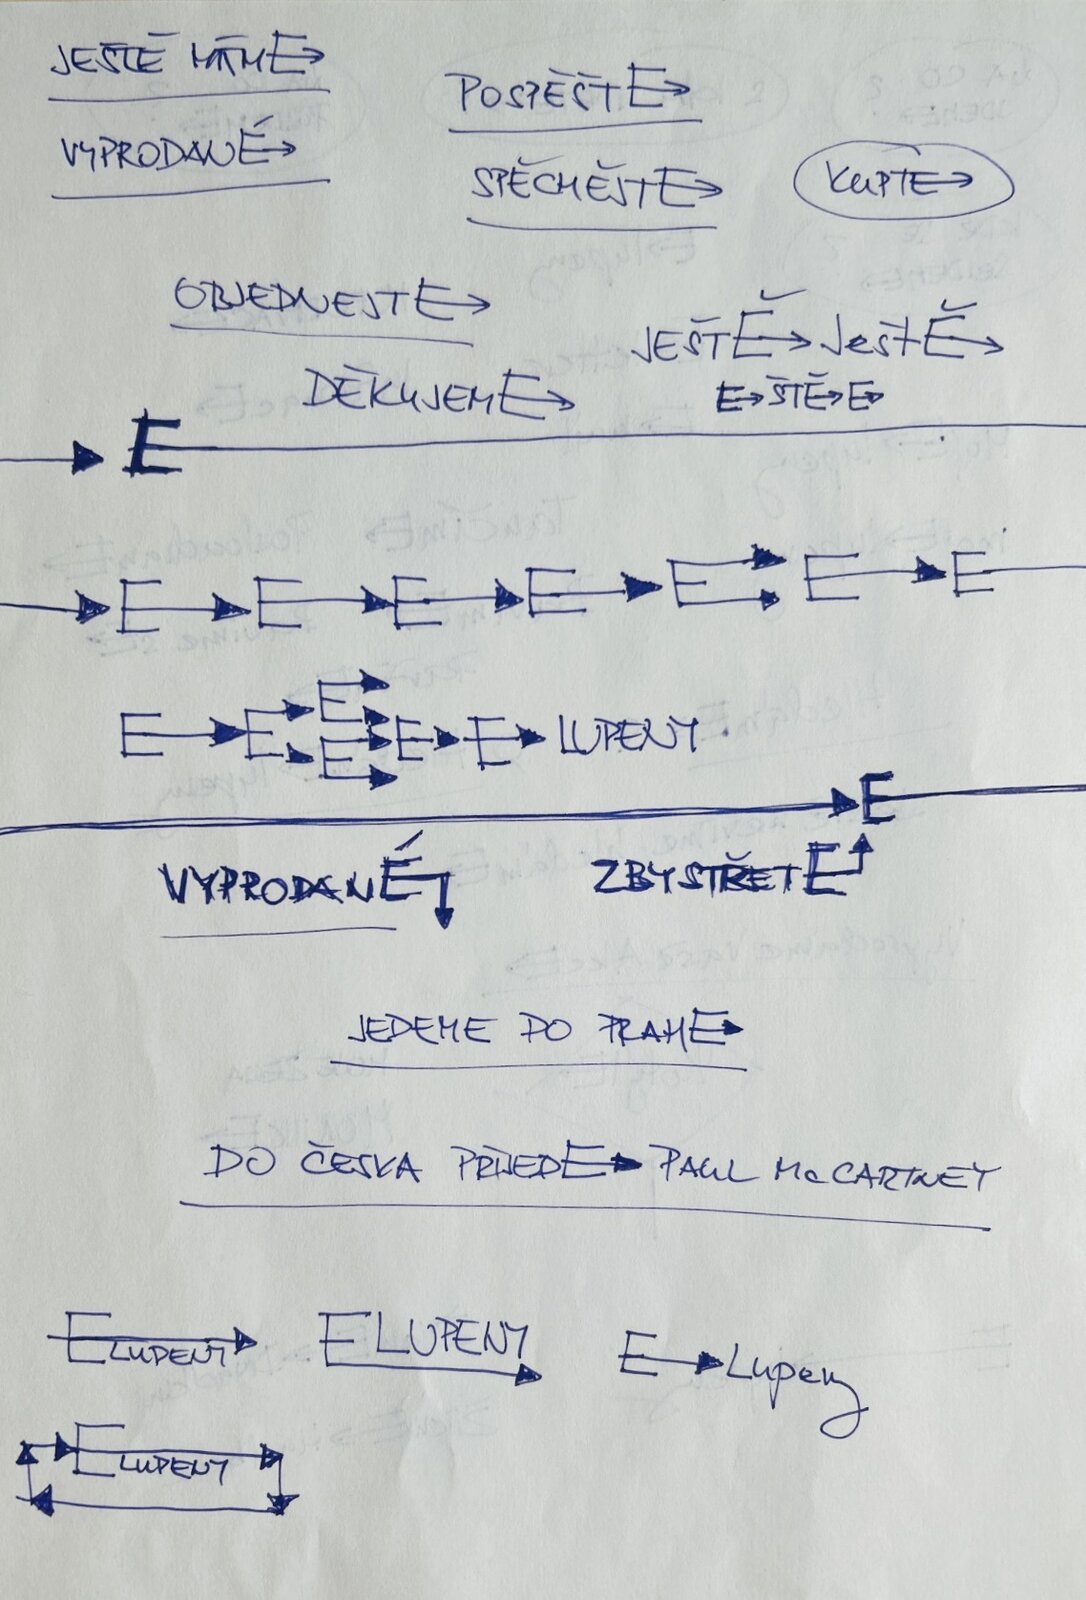 JEŠTĚ MÁME→
VYPRODANÉ→
POSPĚŠTE→
SPĚCHEJTE→
KUPTE→
OBJEDNEJTE→
JEŠTĚ→ JeštĚ→
E→ŠTĚ→E→
DĚKUJEME→
→ E
→ E → E → E → E → E → E → E
E → E → E E → E → E → LUPENY
→ E
VYPRODANÉ
ZBYSTŘETE
JEDEME DO PRAHE→
DO ČESKA PŘIJEDE→ PAUL McCARTNEY
E LUPENY
E LUPENY
E→Lupeny
E LUPENY